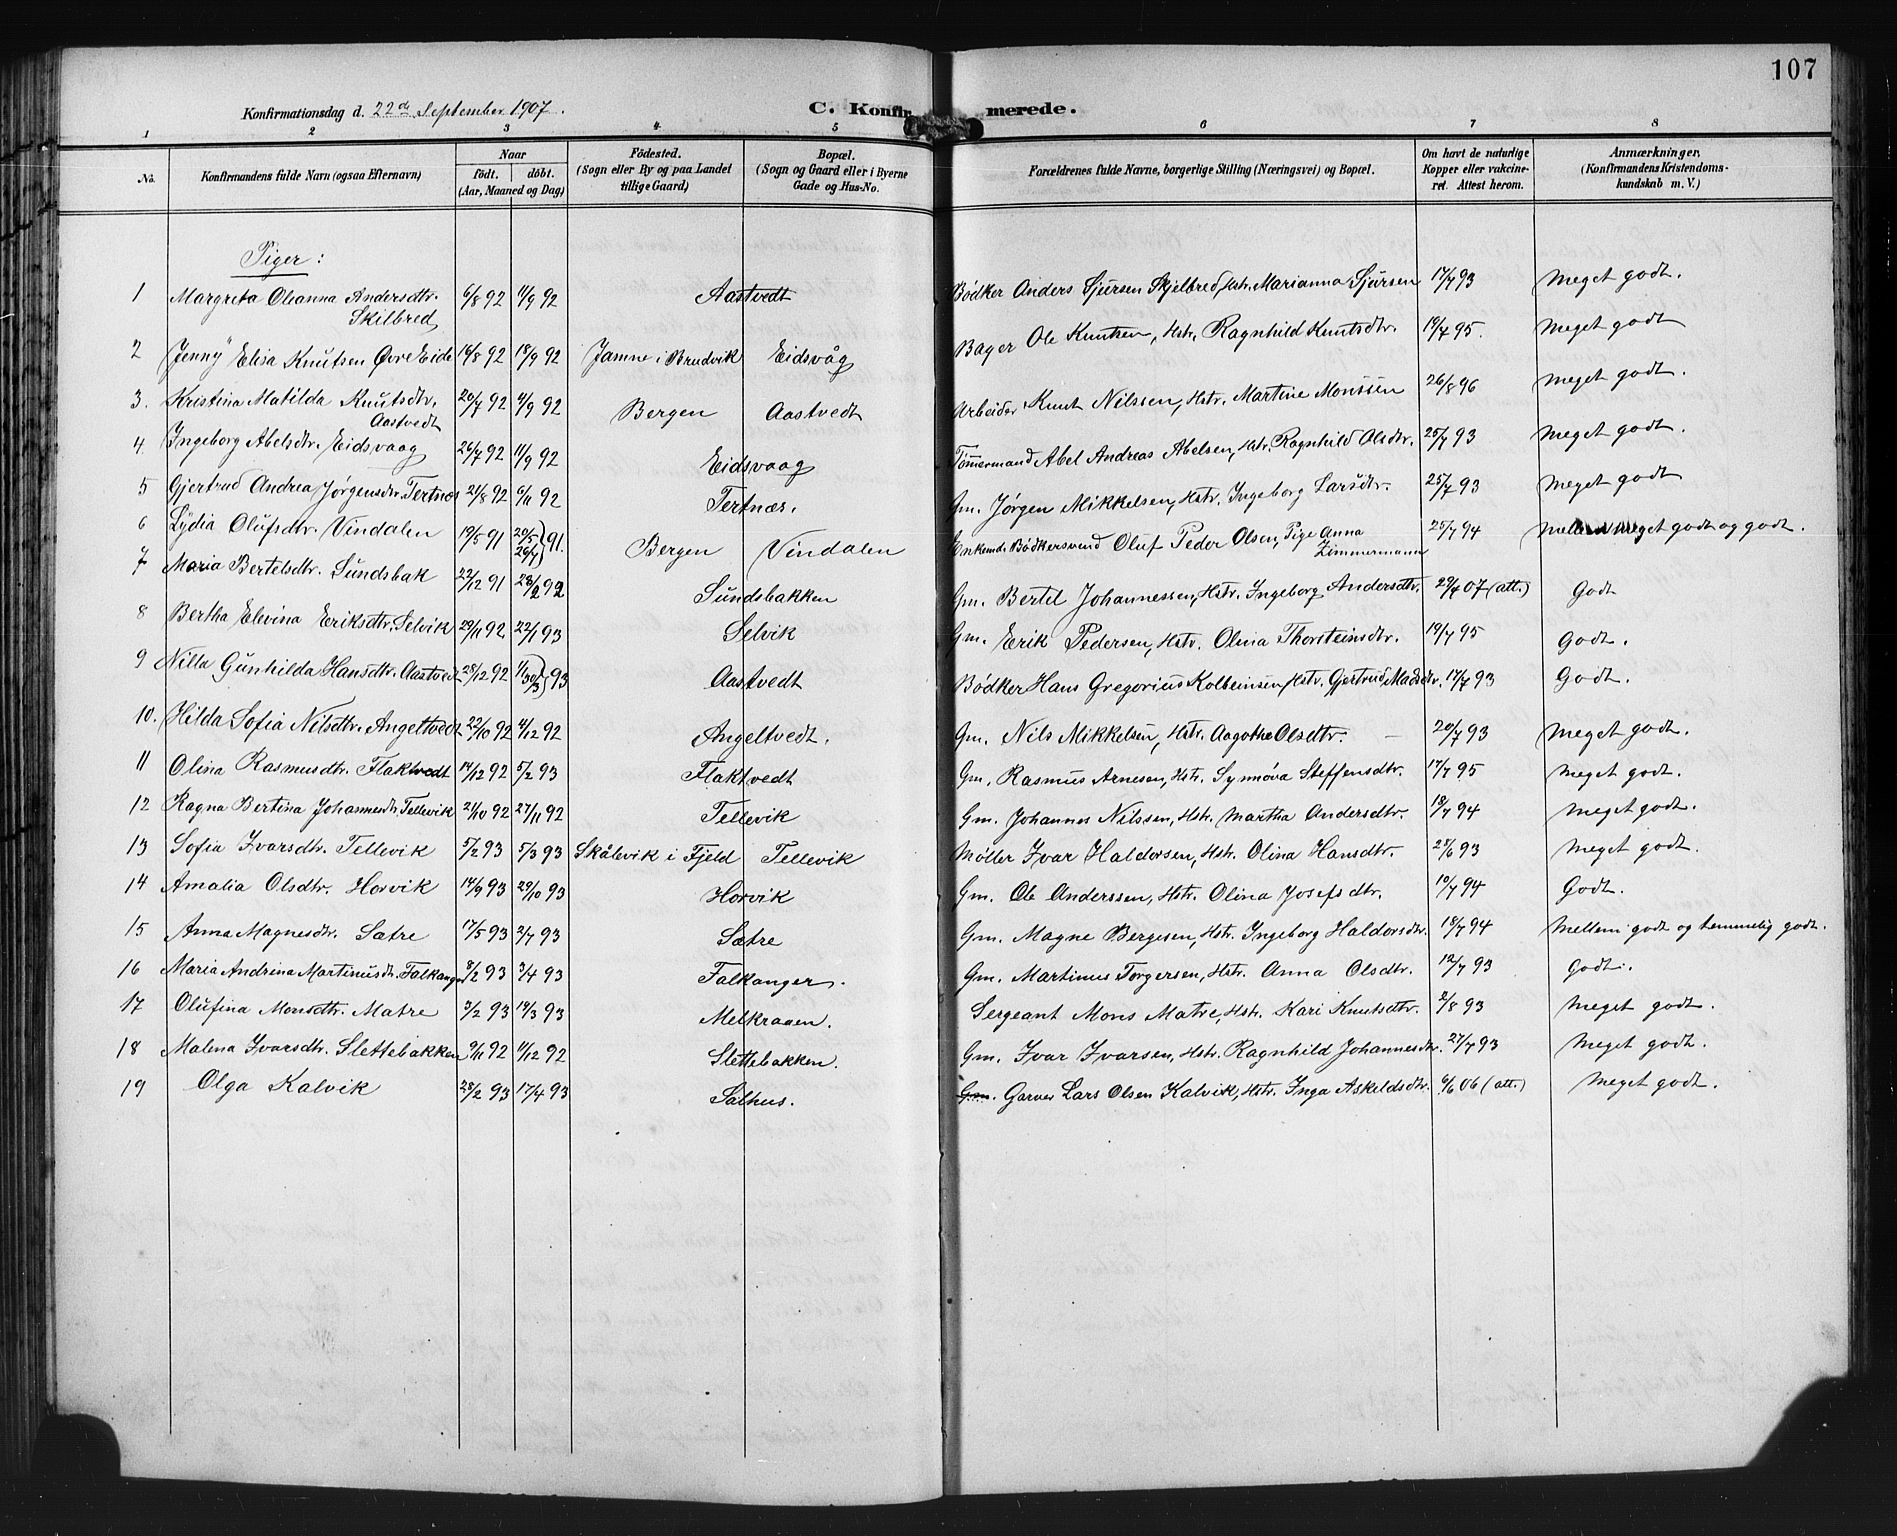 107
Konfirmationsdag d. 22de September 1907. C. Konfirmerede.
1 2 3 4 5 6 7 8
No. Konfirmandens fulde Navn (ogsaa Efternavn) Naar födt. döbt. (Aar, Maaned og Dag) Födested. (Sogn eller By og paa Landet tillige Gaard) Bopæl. (Sogn og Gaard eller i Byerne Gade og Hus-No. Forældrenes fulde Navne, borgerlige Stilling (Næringsvei) og Bopæl. Om havt de naturlige Kopper eller vakcineret. Attest herom. Anmærkninger. (Konfirmandens Kristendomskundskab m. V.)
Piger:
1 Margreta Oleanna Andersdtr. Skilbred 6/8 92 11/9 92 Aastvedt Bødker Anders Sjursen Skjelbred, Hstr. Marianna Sjursen 17/7 93 Meget godt.
2 "Jenny" Elisa Knutsen Øvre Eide 16/8 92 18/9 92 Jamne i Bruvik Eidsvåg Bager Ole Knutsen, Hstr. Ragnhild Knutsdtr. 19/7 95. Meget godt
3. Kristina Matilda Knutsdtr. Aastvedt 20/7 92 4/9 92 Bergen Aastvedt Arbeider Knut Nilssen, Hstr. Martine Monssen 26/8 96 Meget godt.
4. Ingeborg Abelsdtr. Eidsvaag 26/7 92 11/9 92 Eidsvaag Tømmermand Abel Andreas Abelsen, Hstr. Ragnhild Olsdtr. 25/7 93 Meget godt.
5 Gjertrud Andrea Jørgensdtr. Tertnæs 21/8 92 6/11 92 Tertnæs. Gm. Jørgen Mikkelsen, Hstr. Ingeborg Larsdtr. 25/7 93 Meget godt
6 Lydia Olufsdtr. Vindalen 19/5 91 20/5 26/7 } 91. Bergen Vindalen Enkemd. Bødkersvend Oluf Peder Olsen, Pige Anna Zimmermann 25/7 94 mellem meget godt og godt.
7 Maria Bertelsdtr. Sundsbak 22/12 91 28/2 92 Sundsbakken Gm. Bertel Johannessen, Hstr. Ingeborg Andersdtr. 29/4 07 (att.) Godt
8 Bertha Elevina Eriksdtr. Selvik 29/11 92 22/1 93 Selvik Gm. Erik Pedersen, Hstr. Olina Thorsteinsdtr. 19/7 95 Godt.
9 Nilla Gunhilda Hansdtr. Aastvedt 28/12 92 1/1 30/3 } 93 Aastvedt Bødker Hans Gregorius Kolbeinsen, Hstr. Gjertrud Madsdtr. 17/7 93 Godt.
10. Hilda Sofia Nilsdtr. Angeltvedt 22/10 92 4/12 92 Angeltvedt. Gm. Nils Mikkelsen, Hstr. Aagothe Olsdtr. 20/7 93 Meget godt.
11 Olina Rasmusdtr. Flaktvedt 14/12 92 5/2 93 Flaktvedt Gm. Rasmus Arnesen, Hstr. Synnøva Steffensdtr. 17/7 95 Meget godt.
12 Ragna Bertina Johannesdtr. Tellevik 21/10 92 27/11 92 Tellevik Gm. Johannes Nilssen, Hstr. Martha Andersdtr. 18/7 94 Meget godt.
13 Sofia Ivarsdtr. Tellevik 5/2 93 5/3 93 Skålevik i Fjeld Tellevik Møller Ivar Haldorsen, Hstr. Olina Hansdtr. 27/6 93 Meget godt.
14 Amalia Olsdtr. Horvik 14/9 93 29/10 93 Horvik Gm. Ole Anderssen, Hstr. Olina Josefsdtr. 10/7 94 Godt.
15 Anna Magnesdtr. Sætre 17/5 93 2/7 93 Sætre Gm. Magne Bergesen, Hstr. Ingeborg Haldorsdtr. 18/7 94 Mellem godt og temmelig godt.
16 Maria Andrina Martinusdtr. Falkanger 8/2 93 3/4 93 Falkanger. Gm. Martinus Torgersen, Hstr. Anna Olsdtr. 12/7 93 Godt.
17 Olufina Monsdtr. Matre 3/2 93 19/3 93 Melkraaen. Sergeant Mons Matre, Hstr. Kari Knutsdtr. 2/8 93 Meget godt.
18 Malena Ivarsdtr. Slettebakken 9/11 92 11/12 92 Slettebakken. Gm. Ivar Ivarsen, Hstr. Ragnhild Johannesdtr. 27/7 93 Meget godt.
19 Olga Kalvik 28/2 93 17/4 93 Salhus. Gm. Garver Lars Olsen Kalvik, Hstr. Inga Askeldsdtr. 6/6 06 (att.) Meget godt.